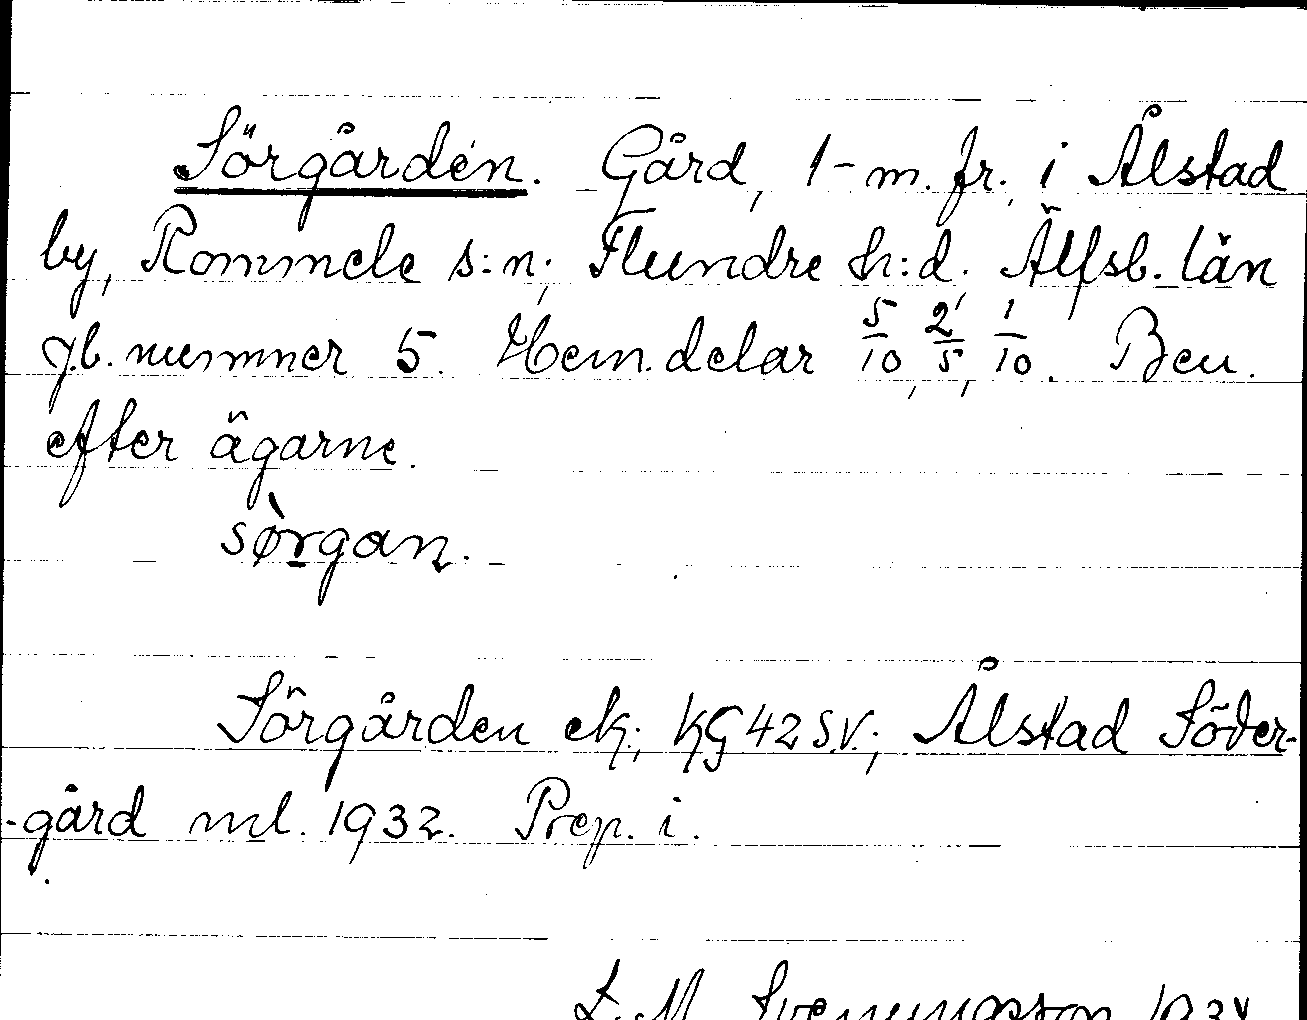 Sörgården. Gård, 1-m. fr. i Ålstad
by, Rommele s:n; Flundre h:d. Älfsb. län
j.b. nummer 5. Hem.delar 5/10, 2/5, 1/10. Ben.
efter ägarne.
sørgan.
Sörgården ek; KG 42 S.V.; Ålstad Söder-
-gård ml. 1932. Prep. i.